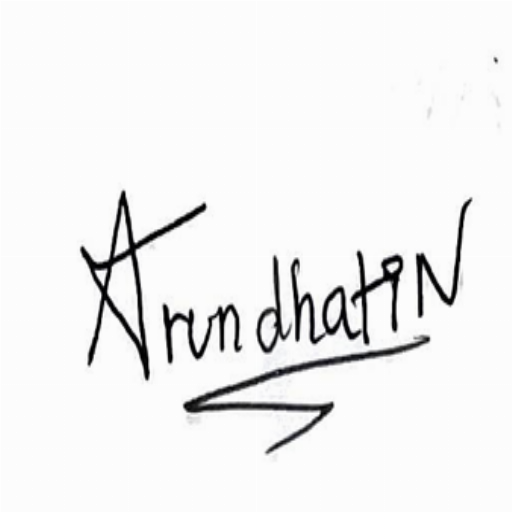 Arundhati N